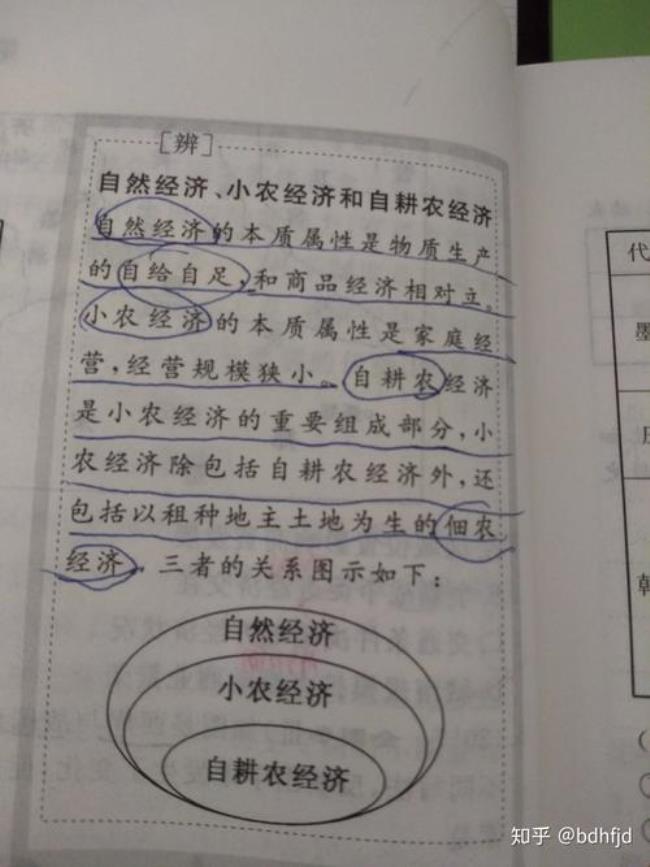 [辨]
自然经济、小农经济和自耕农经济
自然经济的本质属性是物质生产
的自给自足,和商品经济相对立。
小农经济的本质属性是家庭经
营,经营规模狭小。自耕农经济
是小农经济的重要组成部分,小
农经济除包括自耕农经济外,还
包括以租种地主土地为生的佃农
经济。三者的关系图示如下:
自然经济
小农经济
自耕农经济
代
墨
韩
知乎 @bdhfjd